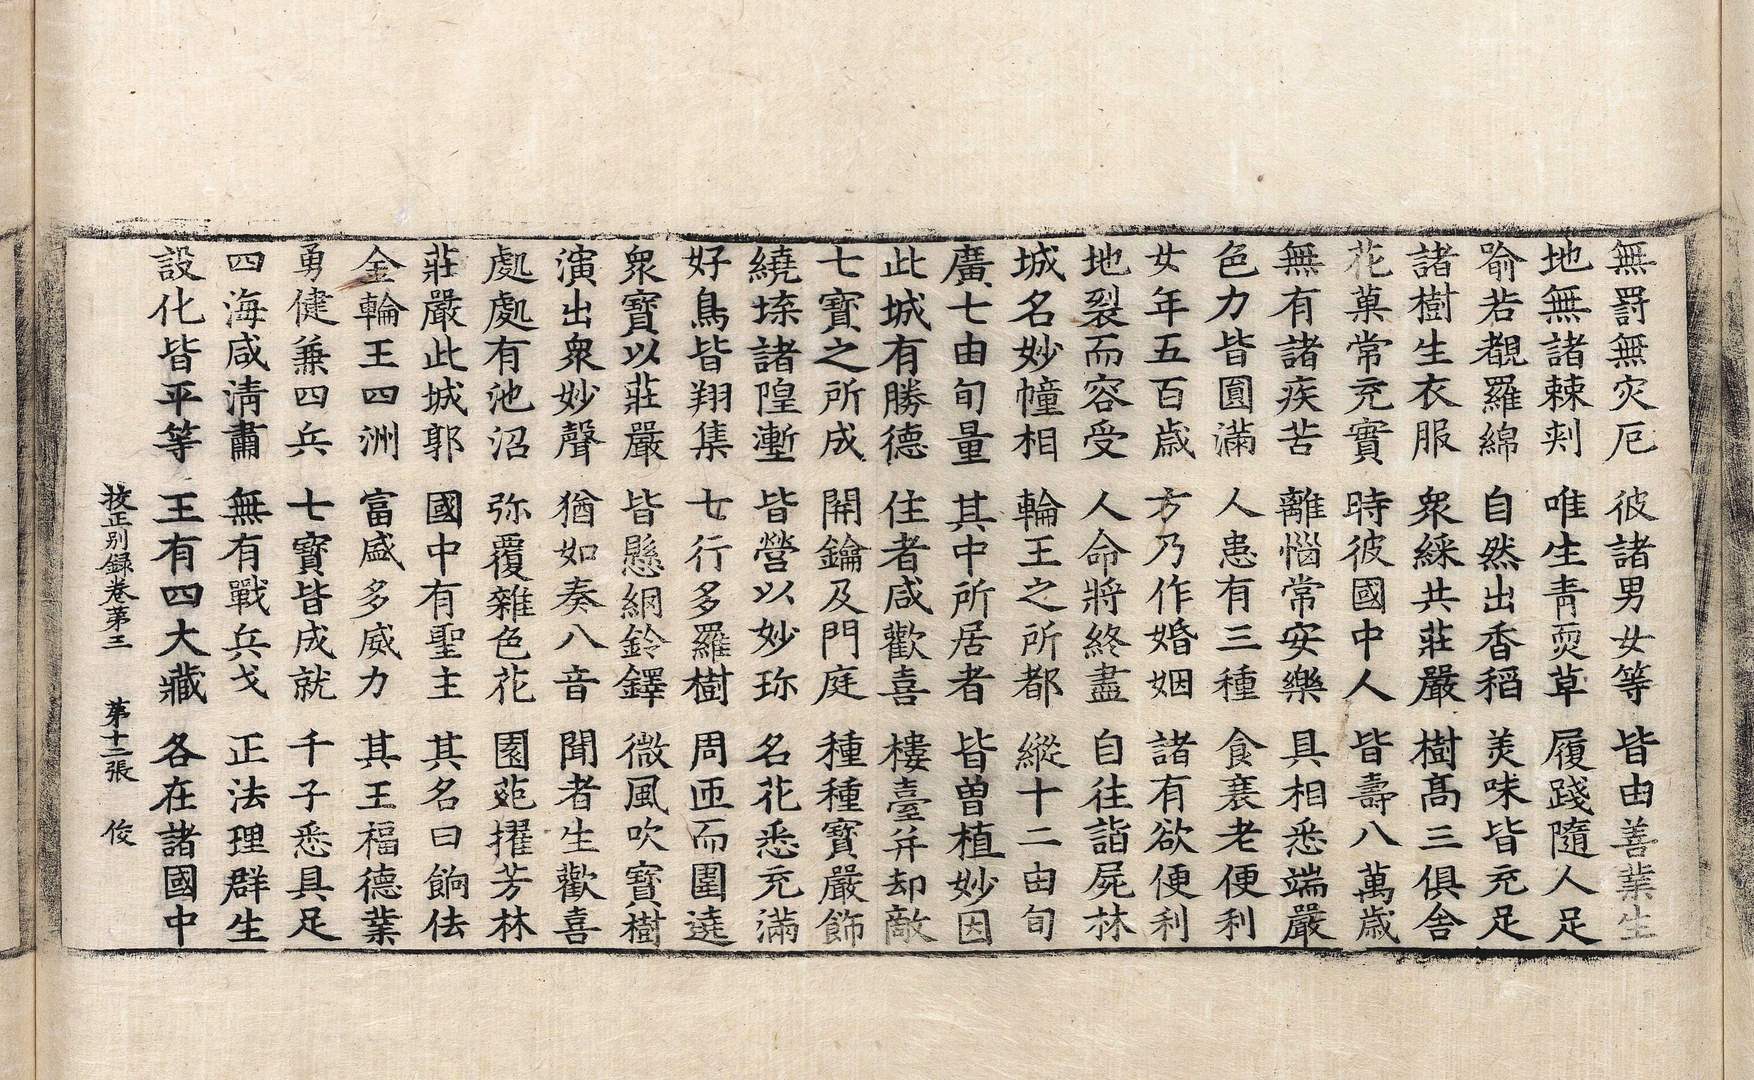 無罰無灾厄 彼諸男女等 皆由善業生
地無諸棘刺 唯生青耎草 履踐隨人足
喻若覩羅綿 自然出香稻 美味皆充足
諸樹生衣服 衆綵共莊嚴 樹高三俱舍
花菓常充實 時彼國中人 皆壽八萬歲
無有諸疾苦 離惱常安樂 具相悉端嚴
色力皆圓滿 人患有三種 食衰老便利
女年五百歲 方乃作婚姻 諸有欲便利
地裂而容受 人命將終盡 自往詣屍林
城名妙幢相 輪王之所都 縱十二由旬
廣七由旬量 其中所居者 皆曽植妙因
此城有勝德 住者咸歡喜 樓臺并却敵
七寶之所成 開鑰及門庭 種種寶嚴飾
繞垛諸隍壍 皆營以妙珎 名花悉充滿
好鳥皆翔集 七行多羅樹 周匝而圍遶
衆寶以莊嚴 皆懸網鈴鐸 微風吹寶樹
演出衆妙聲 猶如奏八音 聞者生歡喜
處處有池沼 弥覆雜色花 園苑擢芳林
莊嚴此城郭 國中有聖主 其名曰餉佉
金輪王四洲 富盛多威力 其王福德業
勇健兼四兵 七寶皆成就 千子悉具足
四海咸清肅 無有戰兵戈 正法理群生
設化皆平等 王有四大藏 各在諸國中
挍正别錄卷第三 第十二張 俊